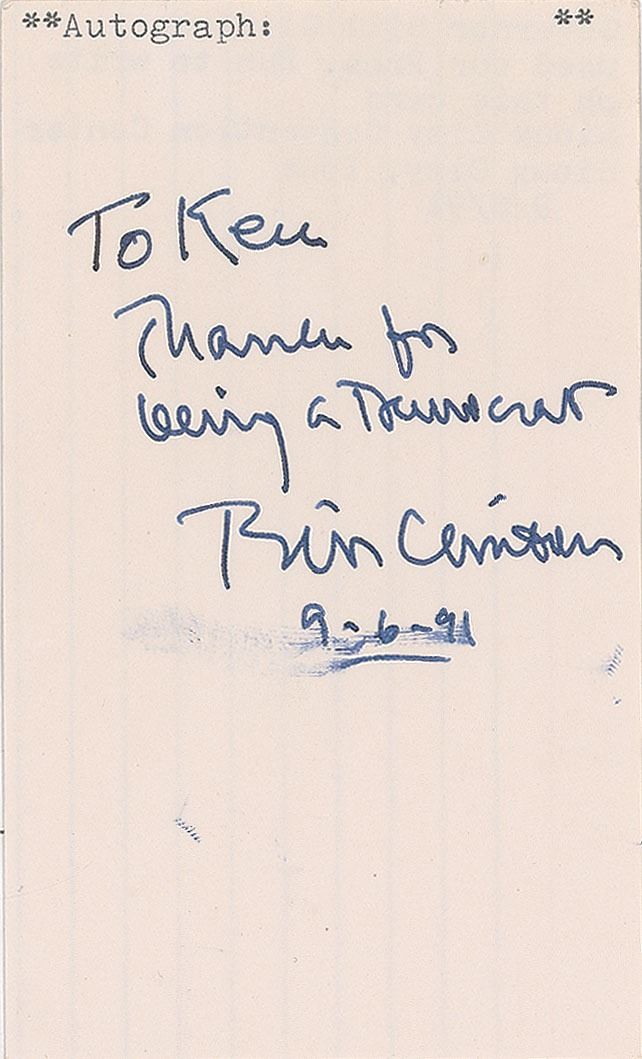 **Autograph: **
To Ken
Thanks for
being a Democrat
Bill Clinton
9-6-91